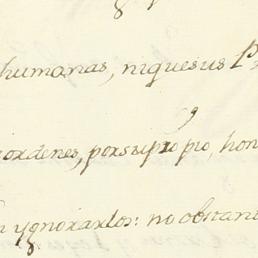 humanas, niquesus
ordenes, porsupropio, hon
ygnorarlos: no obstant